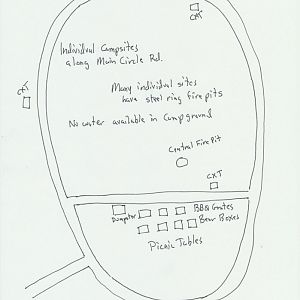 CXT
Individual Campsites
along Main Circle Rd.
Many individual sites
have steel ring fire pits
CXT
No water available in Campground
Central Fire Pit
CXT
Dumpster
BBQ Grates
Bear Boxes
Picnic Tables